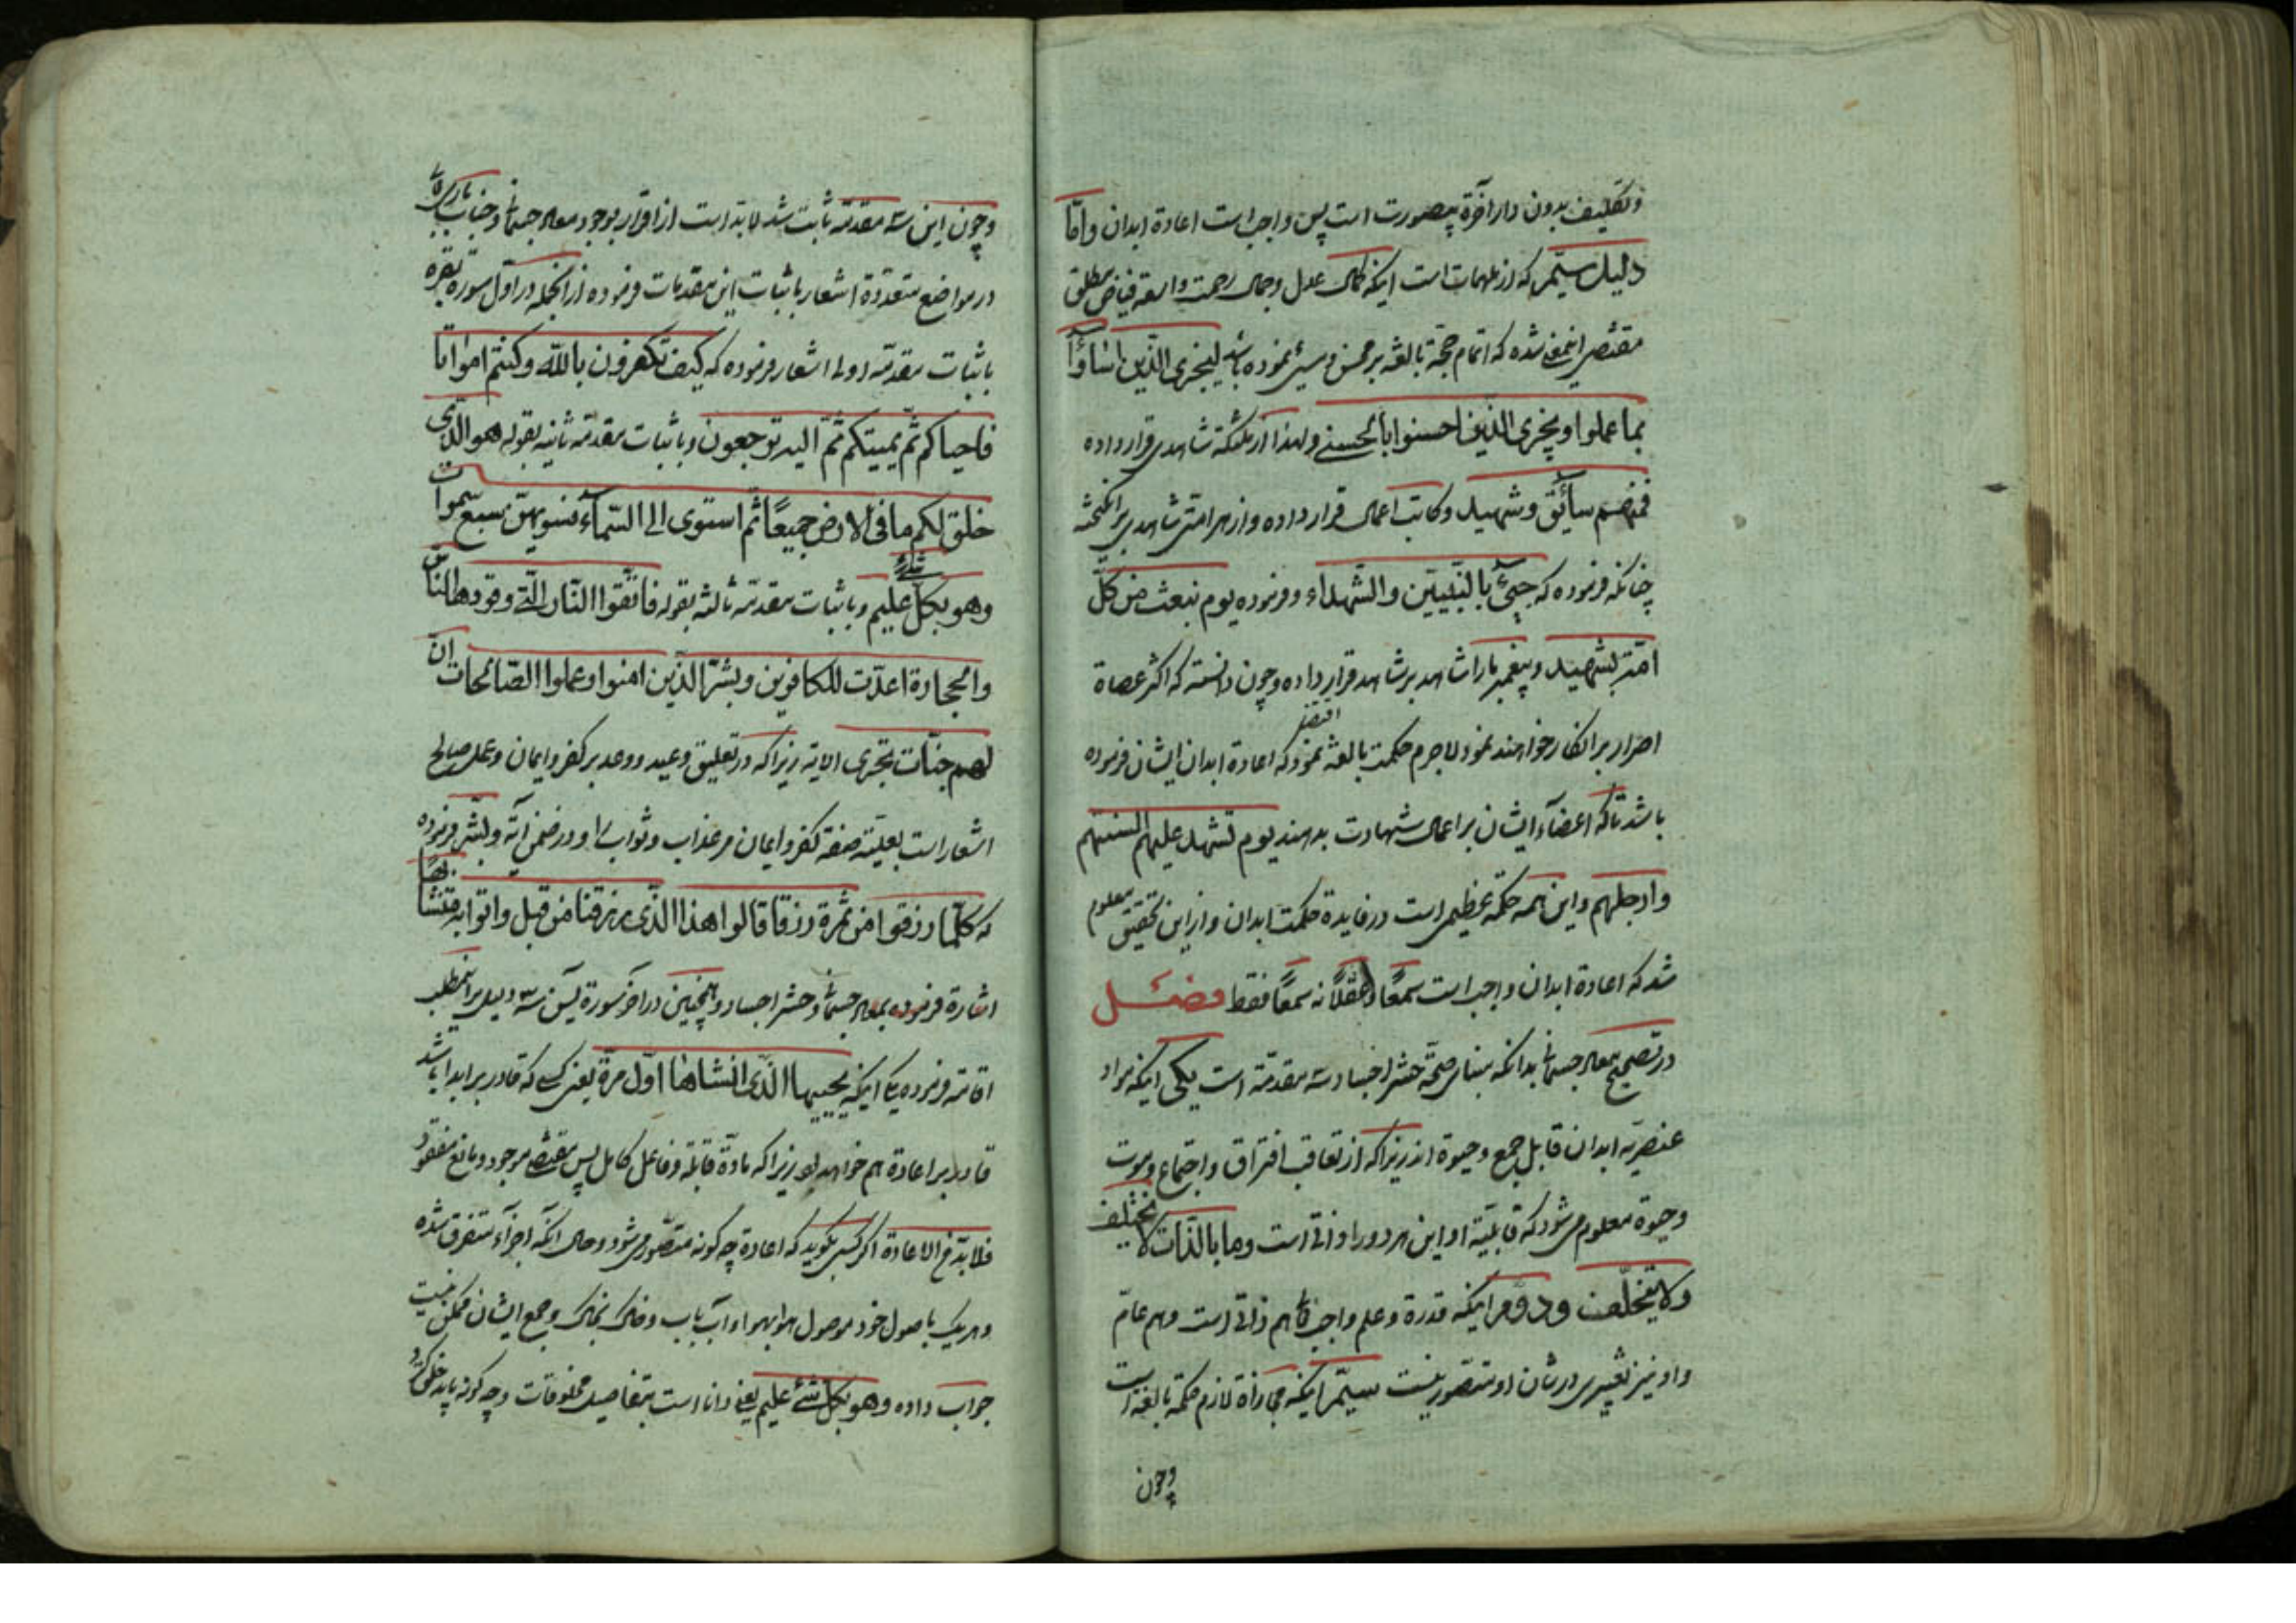 و تکلیف بدون دار آخرة بیصورت است پس واجب است اعادۀ ابدان و امّا
دلیل سیّم که از ملهمات است اینکه کمال عدل و جمال رحمت واسعۀ فیاض مطلق
مقتضی اینمعنی شده که اتمام حجّة بالغه بر محسن و مسیٔ نموده باشد لیجزی الّذین اساؤا
بما عملوا و یجزی الّذین احسنوا بالحسنی و لهذا از ملئکه شاهدی قرار داده
فمنهم سائق و شهید و کاتب اعمال قرار داده و از هر امتی شاهدی برانگیخته
چنانکه فرموده که جیٔ بالنّبیّین و الشّهداء و فرموده یوم نبعث من کلّ
امّة بشهید و پیغمبر ما را شاهد بر شاهد قرار داده و چون دانسته که اکثر عصاة
اصرار بر انکار خواهند نمود لاجرم حکمت بالغه اقتضا نمود که اعادۀ ابدان ایشان فرموده
باشد تا که اعضآء ایشان بر اعمال شهادت بدهند یوم تشهد علیهم السنتهم
و ارجلهم و این همه حکمة عظیمی است در فایدۀ حکمت ابدان و از این تحقیق معلوم
شد که اعادۀ ابدان واجب است سمعًا و عقلًا نه سمعًا فقط فصل
در تصحیح معاد جسمانی بدانکه مبنای صحّة حشر اجساد سه مقدمّه است یکی اینکه مواد
عنصریّه ابدان قابل جمع و حیوة اند زیرا که از تعاقب افتراق و اجتماع و موت
و حیوة معلوم می شود که قابلیّة او این هر دو را ذاتی است و ما بالذّات لا یختلف
و لا یتخلّف و دوّم اینکه قدرة و علم واجب تعالی هم ذاتی است و هم عامّ
و او نیز تغییری در شان او متصّور نیست سیّم اینکه مجازاة لازم حکمة بالغه است
و چون
و چون این سه مقدمّه ثابت شد لابدّ است از اقرار بوجود معاد جسمانی و جناب باری تعالی
در مواضع متعدّدة اشعار باثبات این مقدمات فرموده از انجمله در اوّل سوره بقره
باثبات مقدمّه اولی اشعار فرموده که کیف تکفرون باللّه و کنتم امواتا
فاحیاکم ثمّ یمیتکم ثمّ الیه ترجعون و باثبات مقدمّه ثانیه بقوله هو الّذی
خلق لکم ما فی الارض جمیعًا ثمّ استوی الی السّمآء فسویهنّ سبع سّموات
و هو بکلّ شئ علیم و باثبات مقدمّه ثالثه بقوله فاتّقوا النّار الّتی وقودها النّاس
و الحجارة اعدّت للکافرین و بشّر الّذین امنوا و عملوا الصّالحات انّ
لهم جنّات تجری الایة زیرا که در تعلیق وعید و وعد بر کفر و ایمان و عمل صالح
اشعار است بعلیّة صفة کفر و ایمان مر عذاب و ثواب را و در ضمن آیۀ و بشّر فرموده
که کلّما رزقوا من ثمرة رزقا قالوا هذا الّذی رزقنا من قبل و اتوا به متشابهًا
اشارة فرموده بمعاد جسمانی و حشر اجساد و همچنین در آخر سورۀ یس سه دلیل بر اینمطلب
اقامه فرموده یکی اینکه یحییها الّذی انشاها اوّل مرّة یعنی کسی که قادر بر ابدا باشد
قادر بر اعادة هم خواهد بود زیرا که مادّة قابلة و فاعل کامل پس مقتضی موجود و مانع مفقود
فلا بدّ من الاعادة اگر کسی بگوید که اعادة چه گونه متصّور می شود و حال انکه اجزآء متفرق شده
و هر یک باصول خود موصول هوا بهواء و آب باب و خاک بخاک و جمع ایشان ممکن نیست
جواب داده و هو بکلّ شئ علیم یعنی دانا است بتفاصیل مخلوقات و چه گونه باید خلق کرد